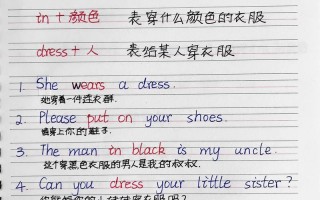 in + 颜色 表穿什么颜色的衣服
dress + 人 表给某人穿衣服
1. She wears a dress.
她穿着一件连衣群.
2. Please put on your shoes.
请穿上你的鞋子.
3. The man in black is my uncle.
这个穿黑色衣服的男人是我的叔叔.
4. Can you dress your little sister?
你能给你的小妹妹穿衣服吗?